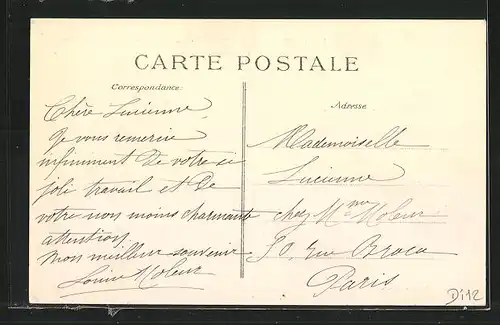 CARTE POSTALE
Correspondance
Adresse
Chère Lucienne,
Je vous remercie
infiniment de votre si
joli travail et de
votre non moins charmante
attention
Mon meilleur souvenir
Louise
Mademoiselle
Lucienne
chez Mme
rue Broca
Paris
D112